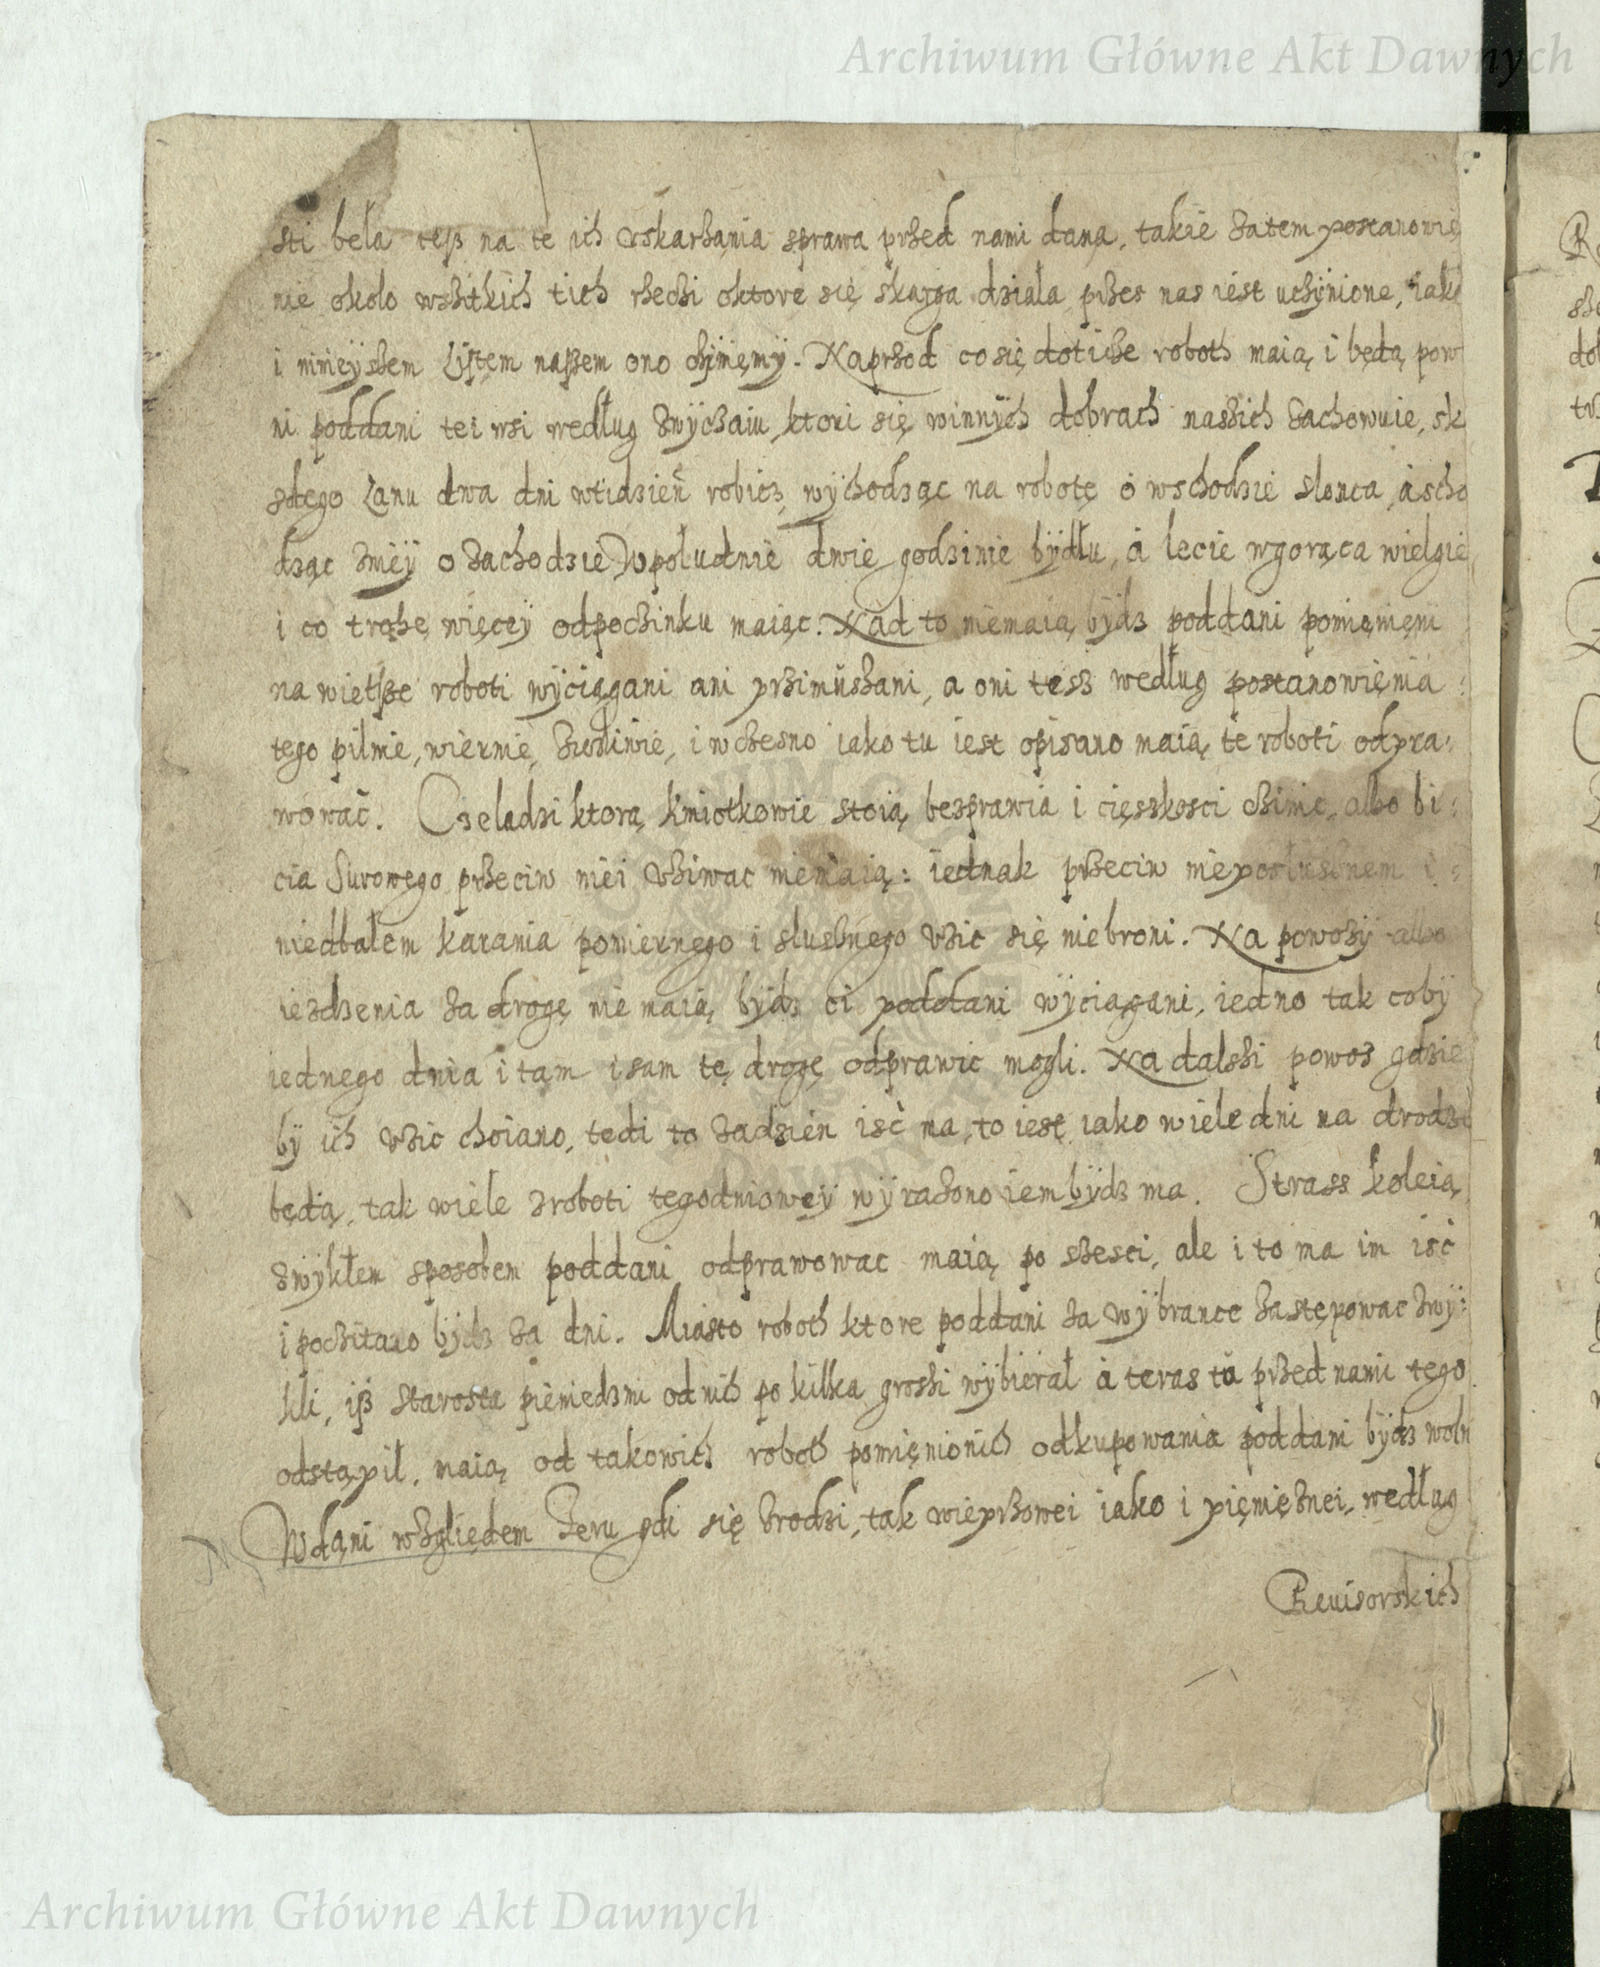 Archiwum Główne Akt Dawnych
sti beła tesz na te ich vskarżąnia sprawa przed nami daną, takie zatem postanowię
nie około wszitkich tich rzeczi oktore się skarga działa przes nas iest uczÿnione, iako
i ninieÿszem Listem naszem ono czÿnięmÿ. Naprzod co się doticze roboth maią i będą pow
ni poddani tei wsi według zwÿczaiu ktori się winnÿch dobrach naszich zachowuie, sk
zdego Lanu dwa dni wtidzień robicz, wÿchodząc na robotę o wschodzie slonca, à scho
dząc zniéÿ o zachodzie Wpołudnie dwie godzinie bÿdłu, á lecie wgorąca wielgie
i co trochę więceÿ odpoczinku maiąc. Nad to niemaią bÿdz poddani pomięnięni
na wietsze roboti wÿciągani ani przimuszani, a oni tesz według postanowięnia
tego pilnie, wiernie, i wczesno iako tu iest opisano maią te roboti odpra:
wowač. Czeladzi ktorą kmiotkowie stoią bezprawia i cięszkosci czinic, albo bi:
cia surowego przeciw niei vżiwac niemaią: iednak przeciw nieposłusznem i
niedbałem karania pomiernego i slusznego vżic się niebroni. Na powozÿ albo
iezdzenia za drogę nie maią bÿdz ci poddani wÿciągani, iedno tak cobÿ
iednego dnia i tam i sam tę drogę odprawic mogli. Na dalszi powoz gdzie
bÿ ich vżic chciano, tedi to zadzień isć ma, to iest iako wiele dni na drodze
będą, tak wiele zroboti tegodnioweÿ wÿrażono iem bÿdz ma. Strass koleią
zwÿkłem sposobem poddani odprawowac maią po szesci, ale i to ma im isć
i poczitano bÿdz za dni. Miasto roboth ktore poddani za wÿbrance zastępowac zwÿ:
kli, isz starosta pieniedzmi od nich po kilka groszi wÿbierał à teras tu przed nami tego
odstąpił, maią od takowich roboth pomięnionich odkupowania poddani bÿdz woln
Wdąni wzglięd­em Żeru gdi się zrodzi, tak wieprzowei iako i pięnięznei, według
Reuisorskich
Archiwum Główne Akt Dawnych